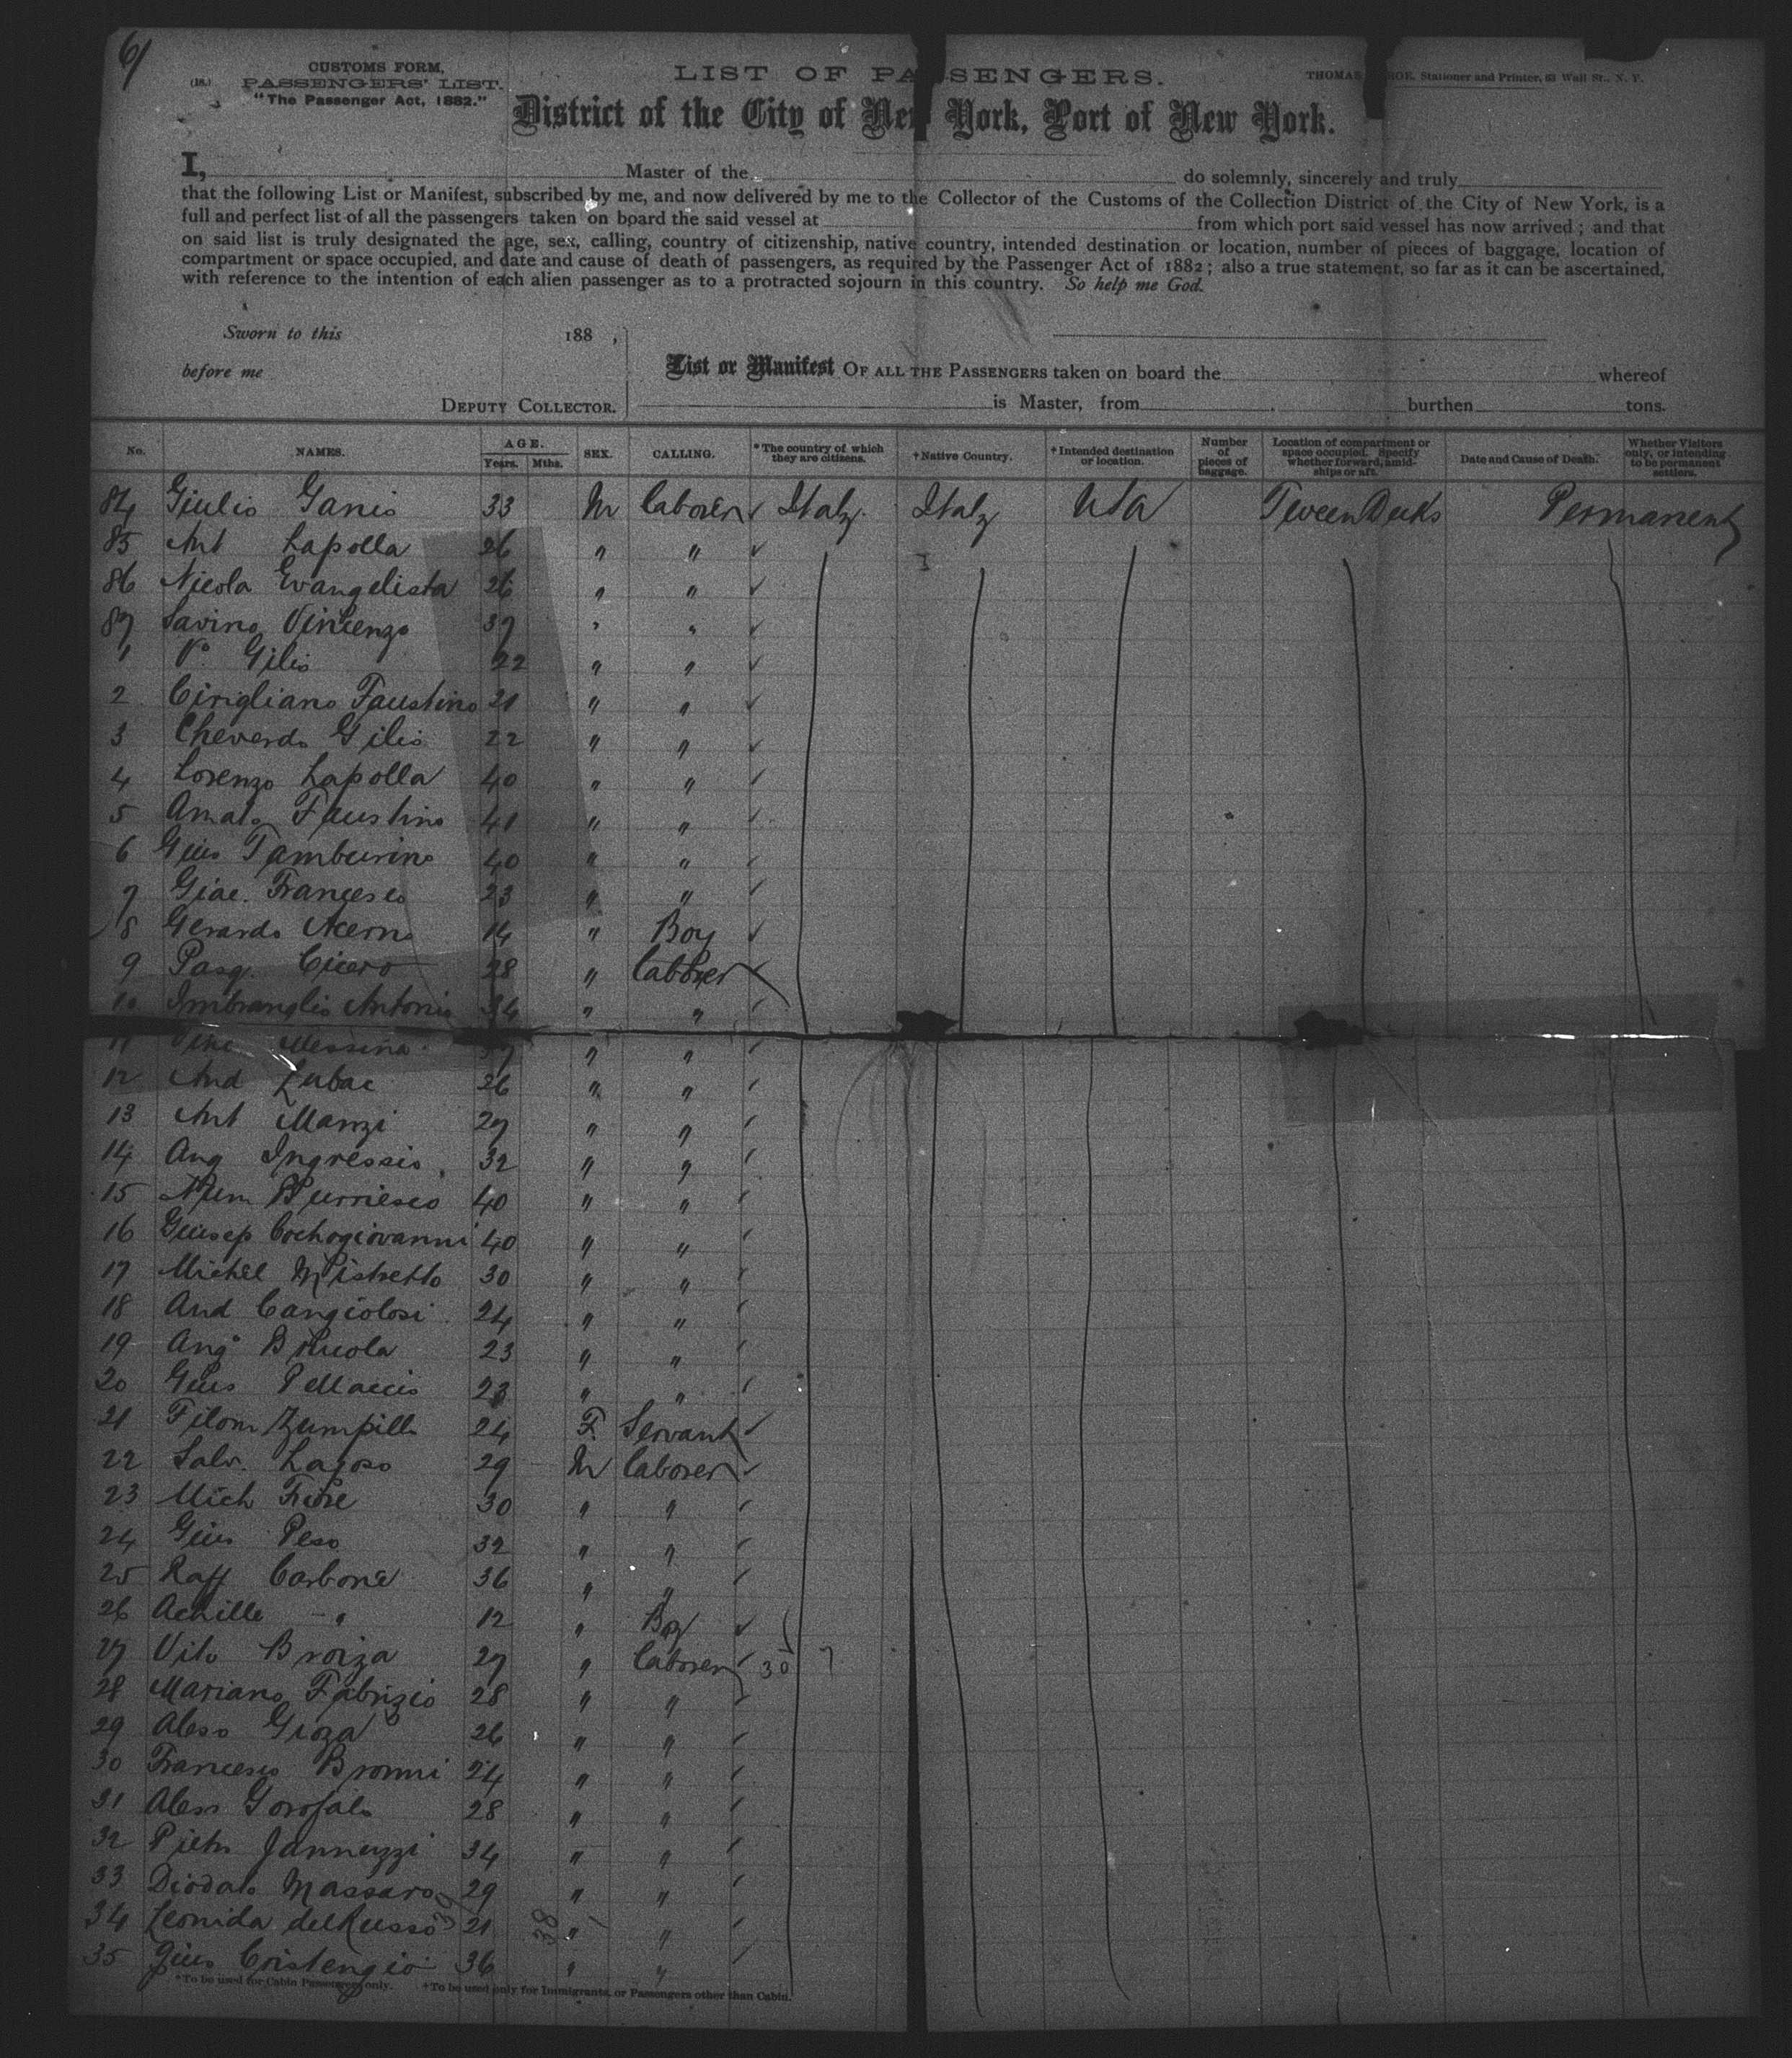 61
CUSTOMS FORM,
(18.) PASSENGERS' LIST.
"The Passenger Act, 1882."
LIST OF PASSENGERS.
THOMAS Stationer and Printer, Wall St., N. Y.
District of the City of New York, Port of New York.
I, Master of the do solemnly, sincerely and truly
that the following List or Manifest, subscribed by me, and now delivered by me to the Collector of the Customs of the Collection District of the City of New York, is a
full and perfect list of all the passengers taken on board the said vessel at from which port said vessel has now arrived; and that
on said list is truly designated the age, sex, calling, country of citizenship, native country, intended destination or location, number of pieces of baggage, location of
compartment or space occupied, and date and cause of death of passengers, as required by the Passenger Act of 1882; also a true statement, so far as it can be ascertained,
with reference to the intention of each alien passenger as to a protracted sojourn in this country. So help me God.
Sworn to this 188 ,
before me
DEPUTY COLLECTOR.
List or Manifest OF ALL THE PASSENGERS taken on board the whereof
is Master, from burthen tons.
No. NAMES. AGE. Years. Mths. SEX. CALLING. *The country of which they are citizens. †Native Country. †Intended destination or location. Number of pieces of baggage. Location of compartment or space occupied. Specify whether forward, amidships or aft. Date and Cause of Death. Whether Visitors only, or intending to be permanent settlers.
84 Giulio Ganio 33 M Laborer Italy Italy USA TweenDecks Permanent
85 Ant Lapolla 26 " "
86 Nicola Evangelista 26 " "
87 Savino Vincenzo 37 " "
1 V. Gilio 22 " "
2 Cirigliano Faustino 21 " "
3 Cheverdo Gilio 22 " "
4 Lorenzo Lapolla 40 " "
5 Amato Faustino 41 " "
6 Gius Tamburino 40 " "
7 Giac. Francesco 23 " "
8 Gerardo Acerno 14 " Boy
9 Pasq. Cicero 28 " Laborer
10 Imbranglio Antonio 34 " "
11 Messina 37 " "
12 And Zubac 26 " "
13 Ant Manzi 27 " "
14 Ang Ingressio 32 " "
15 40 " "
16 Giusep Cochogiovanni 40 " "
17 Michel Mistretto 30 " "
18 And Cangiolosi 24 " "
19 Ang 23 " "
20 Gius Pellaccio 23 " "
21 Filom Zumpille 24 F. Servant
22 Salv. Lagoso 29 M Laborer
23 Mich Fiore 30 " "
24 Gius Peso 32 " "
25 Raff Carbone 36 " "
26 Achille " 12 " Boy
27 Vito Broiza 27 " Laborer 30
28 Mariano Fabrizio 28 " "
29 Aless Gioza 26 " "
30 Francesco Bronni 24 " "
31 Aless Gorofalo 28 " "
32 Pietro Jannuzzi 34 " "
33 Diodato Massaro 29 " "
34 Leonida delRusso 21 38 " "
35 Gius Cristengio 36 " "
*To be used for Cabin Passengers only. †To be used only for Immigrants, or Passengers other than Cabin.